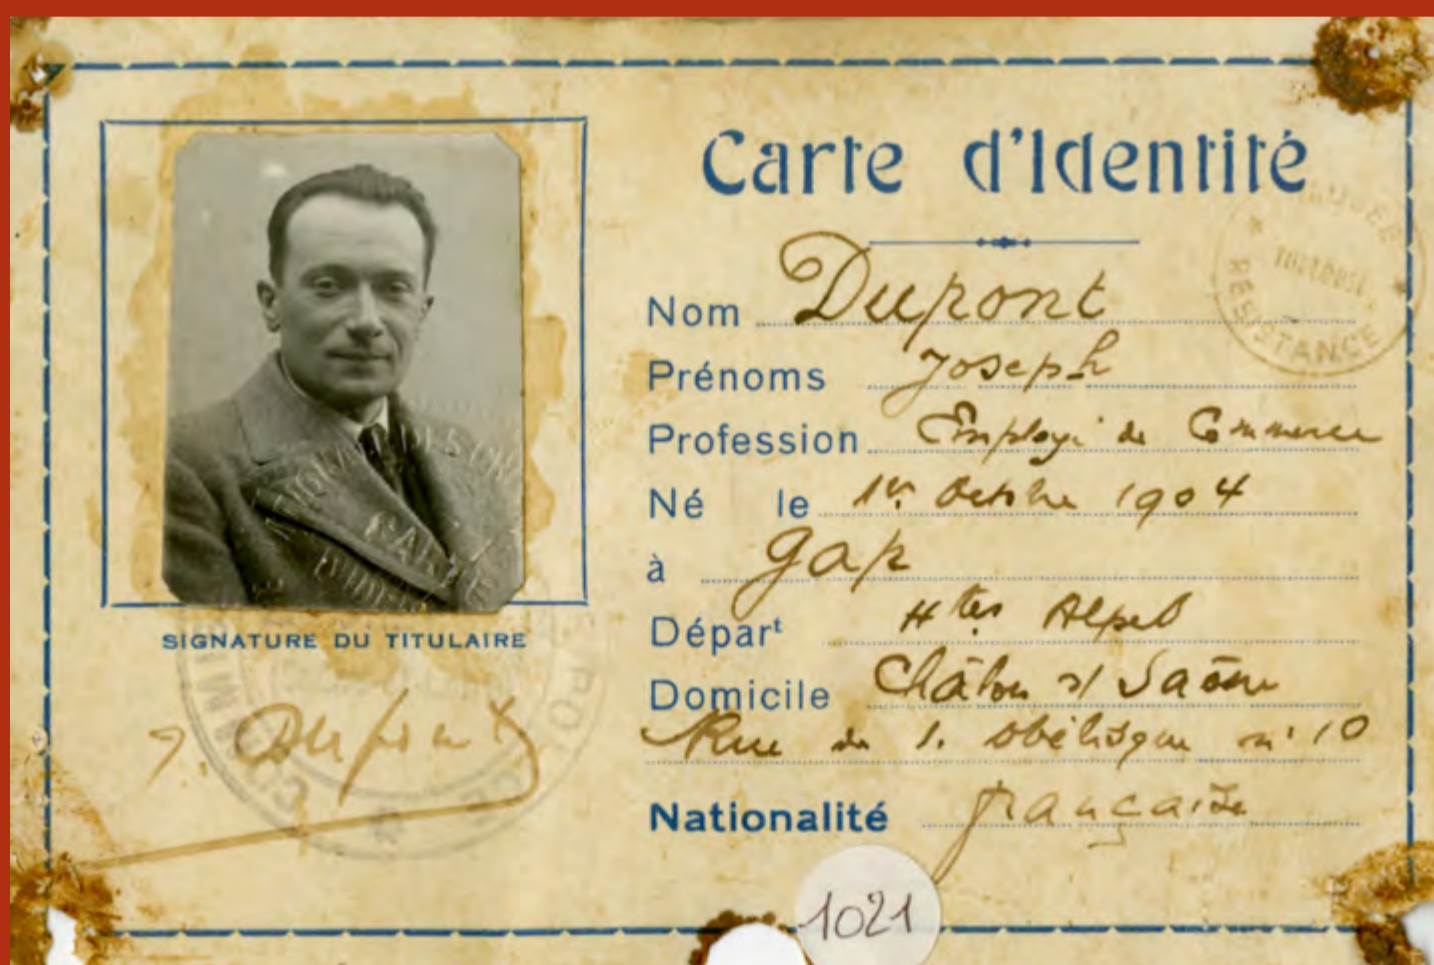 Carte d'Identité
Nom Dupont
Prénoms Joseph
Profession Employé de Commerce
Né le 1er Octobre 1904
à Gap
Départ Htes Alpes
Domicile Châlon s/ Saône
Rue de l'obélisque n° 10
Nationalité française
SIGNATURE DU TITULAIRE
J. Dupont
RESISTANCE
1021